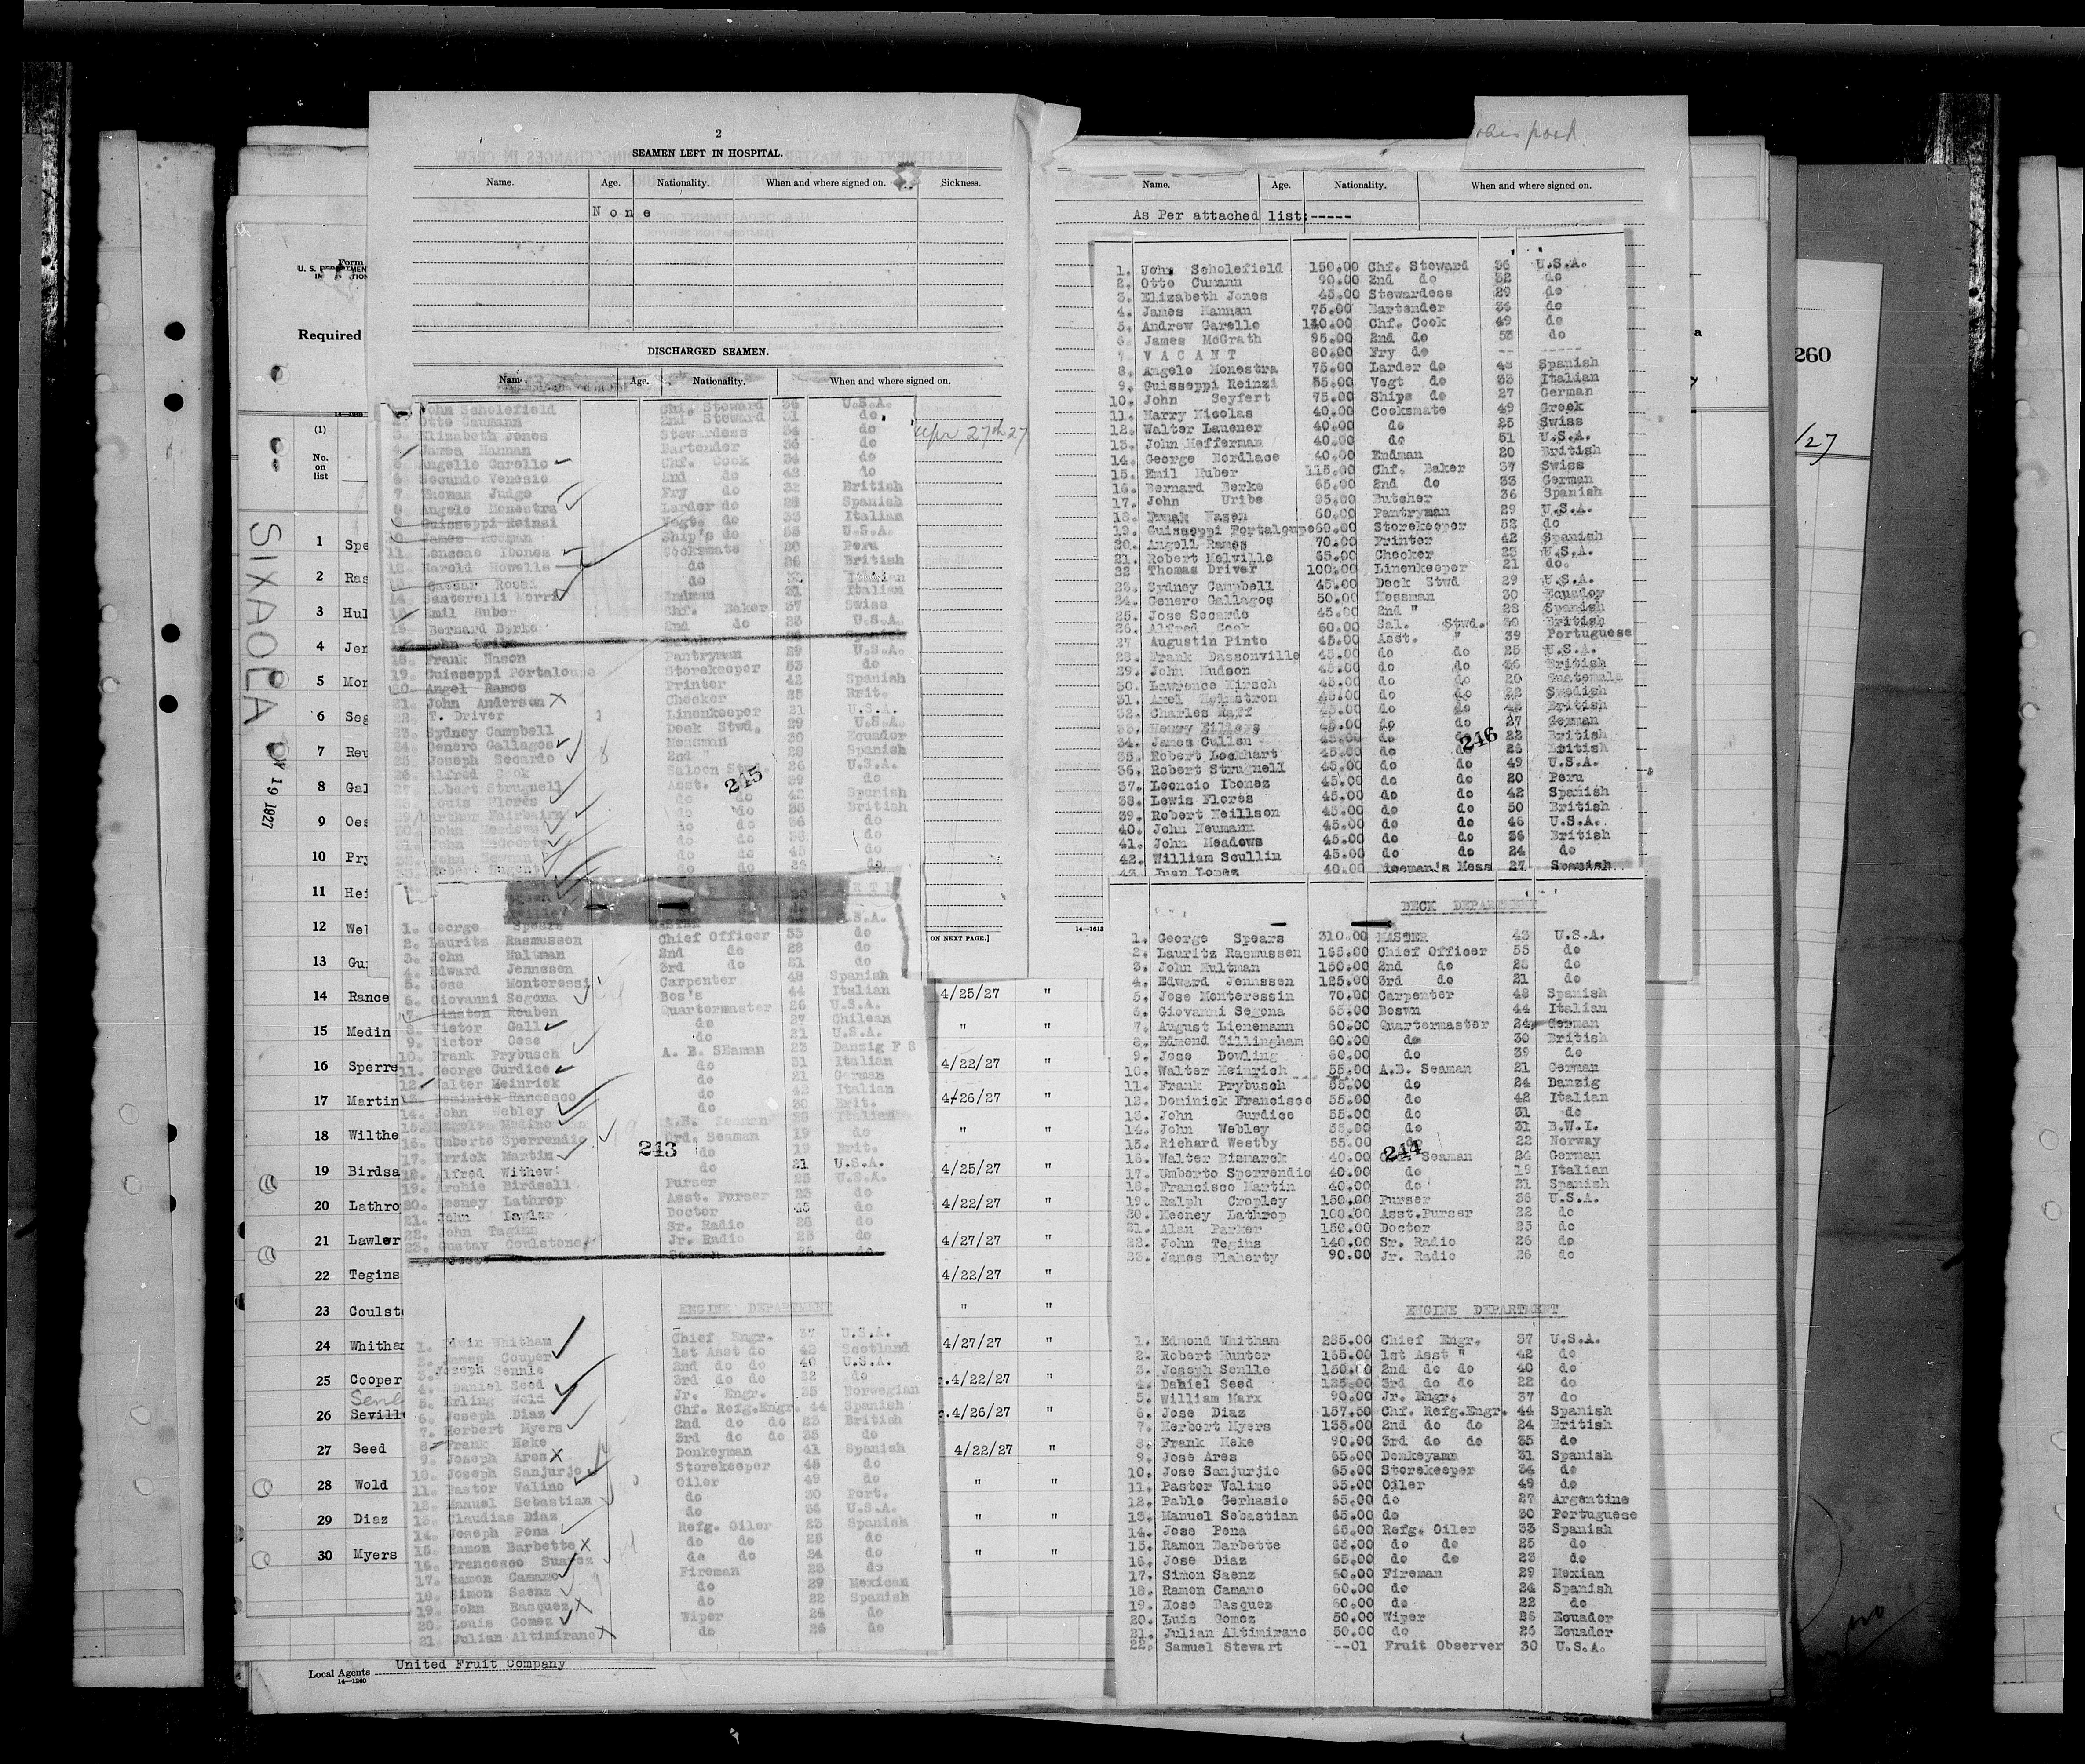 2
SEAMEN LEFT IN HOSPITAL.
Name. Age. Nationality. When and where signed on. Sickness.
None
DISCHARGED SEAMEN.
Age. Nationality. When and where signed on.
John Scholefield Chf. Steward 36 U.S.A.
2. Otto Caumann 2nd Steward 31 do
3. Elizabeth Jones Stewardess 34 do
Apr 27th 27
4. James Hannan Bartender 36 do
5. Angello Garello Chf. Cook 34 do
6. Secundo Venesio 2nd do 42 do
7. Thomas Judge Fry do 32 British
8. Angelo Monestra Larder do 28 Spanish
Guisseppi Reinzi Vegt. do 33 Italian
James Ship's do U.S.A.
11. Ibones Cooksmate 20 Peru
12. Harold Howells do 26 British
Caesar Rossi do Italian
14. Endman 31 Italian
15. Emil Huber Chf. Baker 37 Swiss
16. Bernard Berke 2nd do 23 U.S.A.
18. Frank Nason Pantryman 29 U.S.A.
19. Guisseppi Portaloupe Storekeeper 53 do
20. Angel Ramos Printer 42 Spanish
21. John Anderson Checker 25 Brit.
22. T. Driver Linenkeeper 21 U.S.A.
23. Sydney Campbell Deck Stwd. 29 U.S.A.
24. Genero Gallagos Messman 30 Ecuador
25. Joseph Secardo 2nd " 28 Spanish
26. Alfred Cook Saloon Stwd. 26 U.S.A.
27. Robert Strugnell Asst. 39 do
245
28. Louis Flores do do 42 Spanish
29. Arthur Fairbairn do do 35 British
30. John Meadows do do 36 do
31. John McGoorty do do 38 do
32. John Newman do do 45 do
33. Robert Nugent do do do
ON NEXT PAGE.]
1. George Spears U.S.A.
2. Lauritz Rasmussen Chief Officer 55 do
3. John Hultman 2nd do 28 do
4. Edward Jennssen 3rd do 21 do
5. Jose Monteressi Carpenter 48 Spanish
6. Giovanni Segona Bos's 44 Italian
7. Winston Reuben Quartermaster 26 U.S.A.
8. Victor Gall do 27 Chilean
9. Victor Oese do 21 U.S.A.
10. Frank Prybusch A. B. SEaman 23 Danzig F S
11. George Gurdice do 31 Italian
12. Walter Heinrick do 21 German
13. Dominick Rancesco do 42 Italian
14. John Webley do 30 Brit.
15. Medino A.B. Seaman Italian
16. Umberto Sperrendio Ord. Seaman 19 do
17. Errick Martin do 19 Brit.
243
18. Alfred Withewi do 21 U.S.A.
19. Archie Birdsall Purser 25 U.S.A.
20. Keeney Lathrop Asst. Purser 23 do
21. John Lawler Doctor do
22. John Tagins Sr. Radio 26 do
23. Gustav Coulstone Jr. Radio 25 do
ENGINE DEPARTMENT
1. Edwin Whitham Chief Engr. 37 U.S.A.
2. James Couper 1st Asst do 42 Scotland
3. Joseph Senlle 2nd do do 40 U.S.A.
4. Daniel Seed 3rd do do 22 do
5. Erling Wold Jr. Engr. 25 Norwegian
6. Joseph Diaz Chf. Refg.Engr. 44 Spanish
7. Herbert Myers 2nd do do 23 British
8. Frank Heke 3rd do do 35 do
9. Joseph Ares Donkeyman 41 Spanish
10. Joseph Sanjurjo Storekeeper 45 do
11. Pastor Valino Oiler 49 do
12. Manuel Sebastian do 30 Port.
13. Claudias Diaz do 34 U.S.A.
14. Joseph Pena Refg. Oiler 23 Spanish
15. Ramon Barbette do do 25 do
16. Francesco Suarez do do 24 do
17. Ramon Camano Fireman 23 do
18. Simon Saenz do 29 Mexican
19. John Basquez do 22 Spanish
20. Louis Gomez Wiper 26 do
21. Julian Altimirano do 26 do
Form
U. S. DEPARTMENT
Required
14—1240
(1)
No.
on
list
SIXAOLA
19 1927
1 Spe
2 Ras
3 Hul
4 Jen
5 Mon
6 Seg
7 Reu
8 Gal
9 Oes
10 Pry
11 Hei
12 Web
13 Gur
14 Rance 4/25/27 "
15 Medin " "
16 Sperre 4/22/27 "
17 Martin 4/26/27 "
18 Wilthe " "
19 Birdsa 4/25/27 "
20 Lathro 4/22/27 "
21 Lawler 4/27/27 "
22 Tegins 4/22/27 "
23 Coulst " "
24 Whitha 4/27/27 "
25 Cooper 4/22/27 "
26 Sevill 4/26/27 "
27 Seed 4/22/27 "
28 Wold " "
29 Diaz " "
30 Myers " "
Local Agents United Fruit Company
14—1240
Name. Age. Nationality. When and where signed on.
As Per attached list:-----
1. John Scholefield 150.00 Chf. Steward 36 U.S.A.
2. Otto Cumann 90.00 2nd do 32 do
3. Elizabeth Jones 45.00 Stewardess 29 do
4. James Hannan 75.00 Bartender 34 do
5. Andrew Garello 140.00 Chf. Cook 49 do
6. James McGrath 95.00 2nd do 53 do
7. VACANT 80.00 Fry do -- -----
8. Angelo Monestra 75.00 Larder do 43 Spanish
9. Guisseppi Reinzi 55.00 Vegt do 33 Italian
10. John Seyfert 75.00 Ships do 27 German
11. Harry Nicolas 40.00 Cooksmate 49 Greek
12. Walter Lauener 40.00 do 25 Swiss
13. John Hefferman 40.00 do 51 U.S.A.
14. George Bordlace 40.00 Endman 20 British
15. Emil Huber 115.00 Chf. Baker 37 Swiss
16. Bernard Berke 65.00 2nd do 33 German
17. John Uribe 85.00 Butcher 36 Spanish
18. Frank Nasen 60.00 Pantryman 29 U.S.A.
19. Guisseppi Portaloupe 60.00 Storekeeper 52 do
20. Angell Rames 70.00 Printer 42 Spanish
21. Robert Melville 65.00 Checker 23 U.S.A.
22 Thomas Driver 100.00 Linenkeeper 21 do.
23. Sydney Campbell 45.00 Deck Stwd 29 U.S.A.
24. Genero Gallagos 50.00 Messman 30 Ecuador
25. Jose Secardo 45.00 2nd " 28 Spanish
26. Alfred Cook 60.00 Sal. Stwd. British
27 Augustin Pinto 45.00 Asst. " 39 Portuguese
28. Frank Dassonville 45.00 do do 25 U.S.A.
29. John Hudson 45.00 do do 26 British
30. Lawrence Kirsch 45.00 do do 20 Guatemala
31. Axel Holmstrom 45.00 do do 22 Swedish
32. Charles Raff 45.00 do do 42 British
33. Henry Eilers 45.00 do do 27 German
34. James Cullen 45.00 do do 22 British
246
35. Robert Lockhart 45.00 do do 26 British
36. Robert Strugnell 45.00 do do 49 U.S.A.
37. Leoncio Ibonez 45.00 do do 20 Peru
38. Lewis Flores 45.00 do do 42 Spanish
39. Robert Neillson 45.00 do do 50 British
40. John Neumann 45.00 do do 46 U.S.A.
41. John Meadows 45.00 do do 36 British
42. William Scullin 45.00 do do 24 do
43 Juan Lopez 40.00 Mess 27 Spanish
DECK DEPARTMENT
1. George Spears 310.00 MASTER 43 U.S.A.
2. Lauritz Rasmussen 165.00 Chief Officer 55 do
3. John Hultman 150.00 2nd do 28 do
4. Edward Jennssen 125.00 3rd do 21 do
5. Jose Monteressin 70.00 Carpenter 48 Spanish
6. Giovanni Segona 65.00 Boswn 44 Italian
7. August Lienemann 60.00 Quartermaster 24 German
8. Edmond Gillingham 60.00 do 30 British
9. Jose Dowling 60.00 do 39 do
10. Walter Heinrich 55.00 A.B. Seaman 21 German
11. Frank Prybusch 55.00 do 24 Danzig
12. Dominick Francisco 55.00 do 42 Italian
13. John Gurdice 55.00 do 31 do
14. John Webley 55.00 do 31 B.W.I.
15. Richard Westby 55.00 do 22 Norway
16. Walter Bismarck 40.00 Seaman 24 German
244
17. Umberto Sperrendio 40.00 do 19 Italian
18. Francisco Martin 40.00 do 21 Spanish
19. Ralph Cropley 150.00 Purser 36 U.S.A.
20. Keeney Lathrop 100.00 Asst.Purser 22 do
21. Alan Parker 150.00 Doctor 25 do
22. John Tegins 140.00 Sr. Radio 26 do
23. James Flaherty 90.00 Jr. Radio 26 do
ENGINE DEPARTMENT
1. Edmond Whitham 285.00 Chief Engr. 37 U.S.A.
2. Robert Hunter 165.00 1st Asst " 42 do
3. Joseph Senlle 150.00 2nd do do 40 do
4. Daniel Seed 125.00 3rd do do 22 do
5. William Marx 90.00 Jr. Engr. 37 do
6. Jose Diaz 157.50 Chf. Refg.Engr. 44 Spanish
7. Herbert Myers 135.00 2nd do do 24 British
8. Frank Heke 90.00 3rd do do 35 do
9. Jose Ares 65.00 Donkeyamn 31 Spanish
10. Jose Sanjurjio 65.00 Storekeeper 34 do
11. Pastor Valino 65.00 Oiler 49 do
12. Pablo Gerhasio 65.00 do 27 Argentine
13. Manuel Sebastian 65.00 do 30 Portuguese
14. Jose Pena 65.00 Refg. Oiler 33 Spanish
15. Ramon Barbette 65.00 do do 25 do
16. Jose Diaz 65.00 do do 23 do
17. Simon Saenz 60.00 Fireman 29 Mexian
18. Ramon Camano 60.00 do 24 Spanish
19. Hose Basquez 60.00 do 22 do
20. Luis Gomez 50.00 Wiper 26 Ecuador
21. Julian Altimirano 50.00 do 26 Ecuador
22. Samuel Stewart --01 Fruit Observer 30 U.S.A.
260
/27